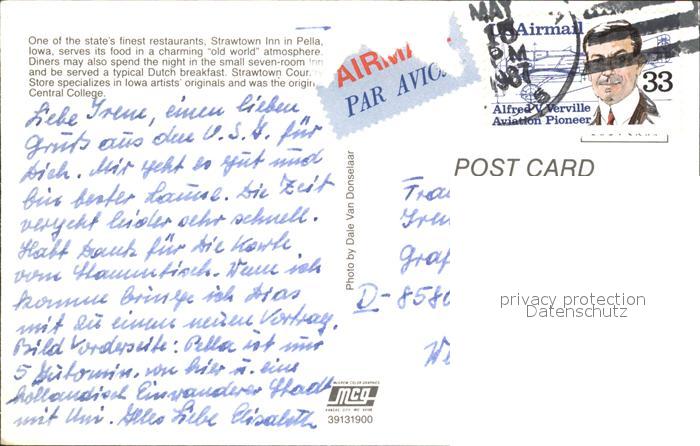 One of the state's finest restaurants, Strawtown Inn in Pella,
Iowa, serves its food in a charming "old world" atmosphere.
Diners may also spend the night in the small seven-room Inn
and be served a typical Dutch breakfast. Strawtown Coun
Store specializes in Iowa artists' originals and was the origin
Central College.
AIRMA
PAR AVIO
MAY
PM
1987
US Airmail
33
Alfred V. Verville
Aviation Pioneer
POST CARD
Liebe Irene, einen lieben
Gruß aus den U.S.A. für
Dich. Mir geht es gut und
bin bester Laune. Die Zeit
vergeht leider sehr schnell.
Habt Dank für die Karte
vom Stammtisch. Wenn ich
komme bringe ich Dias
mit zu einem neuen Vortrag.
Bild Vorderseite: Pella ist nur
5 Automin. von hier u. eine
holländisch Einwanderer Stadt
mit Uni. Alles Liebe Elisabeth
Photo by Dale Van Donselaar
Fra
Iren
Graf
D-8580
We
privacy protection
Datenschutz
mcg
39131900